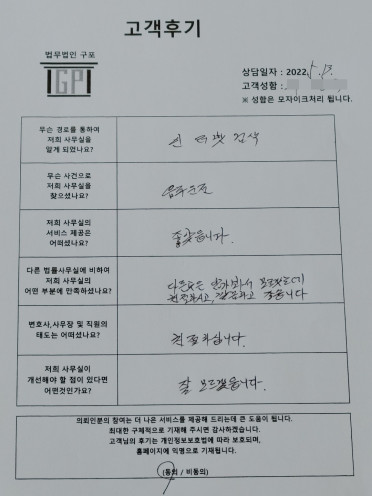 고객후기
법무법인 구포
GP
상담일자 : 2022.
고객성함 :
※ 성함은 모자이크처리 됩니다.
무슨 경로를 통하여
저희 사무실을
알게 되었나요?
인터넷 검색
무슨 사건으로
저희 사무실을
찾으셨나요?
음주운전
저희 사무실의
서비스 제공은
어떠셨나요?
좋았습니다.
다른 법률사무실에 비하여
저희 사무실의
어떤 부분에 만족하셨나요?
다른곳은 안가봐서 모르겠는데
친절하시고, 꼼꼼하고 좋습니다
변호사,사무장 및 직원의
태도는 어떠셨나요?
친절하십니다.
저희 사무실이
개선해야 할 점이 있다면
어떤것인가요?
잘 모르겠습니다.
의뢰인분의 참여는 더 나은 서비스를 제공해 드리는데 큰 도움이 됩니다.
최대한 구체적으로 기재해 주시면 감사하겠습니다.
고객님의 후기는 개인정보보호법에 따라 보호되며,
홈페이지에 익명으로 기재됩니다.
(동의 / 비동의)